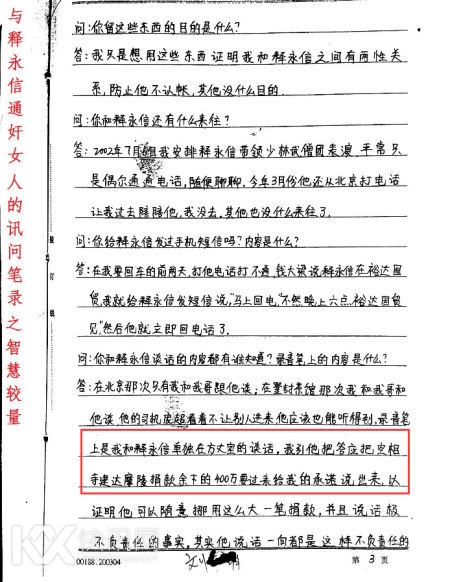 与释永信通奸女人的讯问笔录之智慧较量
问:你留这些东西的目的是什么?
答:我只是想用这些东西证明我和释永信之间有两性关
系,防止他不认帐,其他没什么目的.
问:你和释永信还有什么来往?
答:2002年7月 我安排释永信带领少林武僧团表演,平常只
是偶尔通通电话,随便聊聊,今年3月份他还从北京打电话
让我过去陪陪他,我没去,其他也没什么来往了.
问:你给释永信发过手机短信吗?内容是什么?
答:在我要回车的前两天,打他电话打不通,钱大梁说释永信在裕达国
贸,我就给释永信发短信说,"马上回电,"不然晚上六点裕达国贸
见,"然后他就立即回电话了.
问:你和释永信谈话的内容都有谁知道?录音笔上的内容是什么?
答:在北京那次只有我和我哥跟他谈;在登封茶馆那次我和我哥和
他谈,他的司机 看着不让别人进来,他应该也能听得到,录音笔
上是我和释永信单独在方丈室的谈话,我引他把答应把空相
寺建达摩院捐款余下的400万要过来给我的承诺说出来,以
证明他可以随意挪用这么大一笔捐款,并且说话极
不负责任的事实,其实他说话一向都是这样不负责任的
00188.200304
第3页
装订线